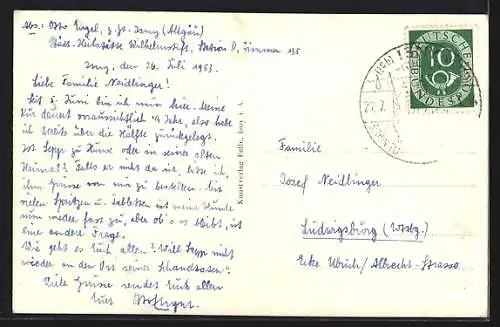 Abs: Otto Engel, z. Zt. Isny (Allgäu)
Städt. Heilstätte Wilhelmstift, Station D, Zimmer 135
Isny, den 26. Juli 1953.
Liebe Familie Neidlinger!
Seit 5. Juni bin ich nun hier. Meine
Kur dauert voraussichtlich 1/4 Jahr, also habe
ich bereits über die Hälfte zurückgelegt.
Ist Sepp zu Hause oder in seiner alten
Heimat? Falls er mit da ist, bitte ich,
ihm Grüsse von mir zu bestellen. Mit
vielen Spritzen u. Tabletten ist meine Wunde
nun wieder fast zu, aber ob es so bleibt, ist
eine andere Frage.
Wie geht es Euch allen? Will Sepp nicht
wieder an den Ort seiner Schandtaten?
Viele Grüsse sendet Euch allen
Euer
Kunstverlag Feßle, Isny i. A.
DEUTSCHE
BUNDESPOST
10
ISNY
27.7.
Familie
Josef Neidlinger
Ludwigsburg (Wttbg.)
Ecke Ulrich/Albrecht-Strasse